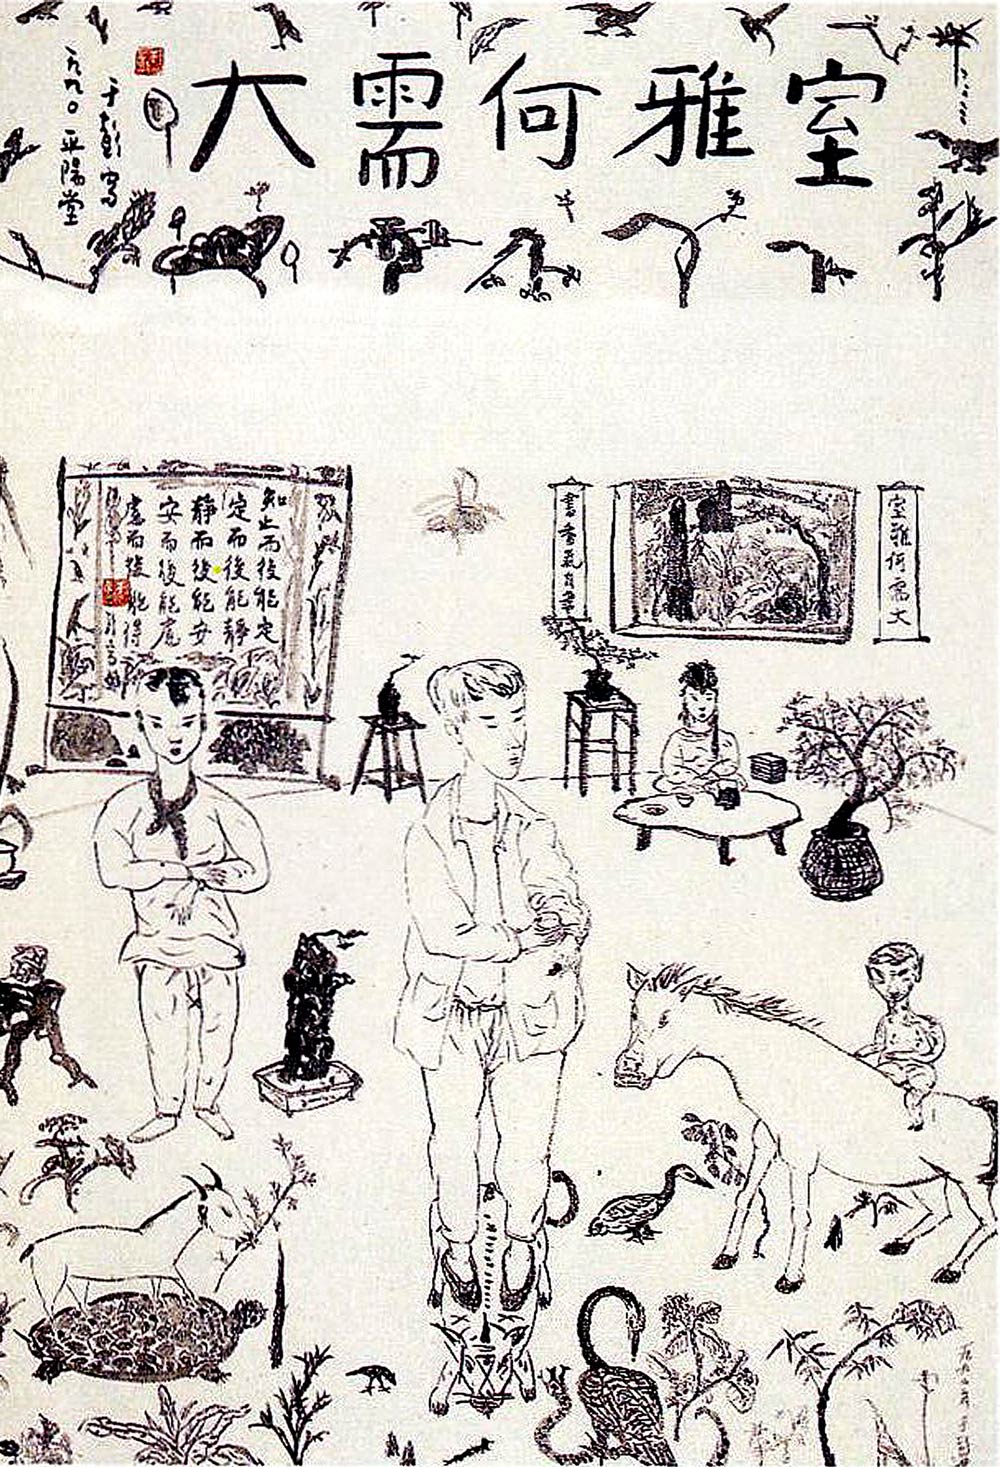 室雅何需大
于彭寫
一九九〇
陽堂
知止而後能定
定而後能靜
靜而後能安
安而後能慮
慮而後能得
室雅何需大
書香氣自華